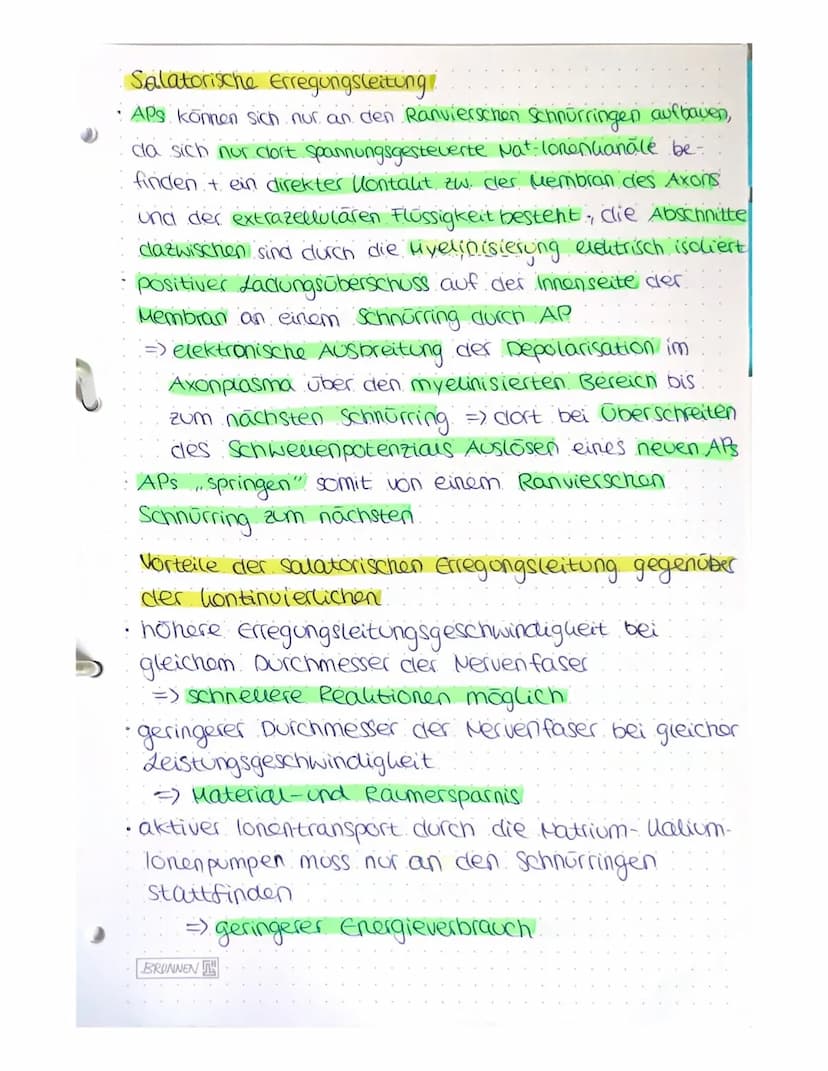 Salatorische Erregungsleitung
· APs können sich nur an den Ranvierschen Schnürringen aufbauen,
da sich nur dort spannungsgesteuerte Nat-Ionenkanäle be-
finden + ein direkter Kontakt zw. der Membran des Axons
und der extrazellulären Flüssigkeit besteht; die Abschnitte
dazwischen sind durch die Myelinisierung elektrisch isoliert
· positiver Ladungsüberschuss auf der Innenseite der
Membran an einem Schnürring durch AP
=> elektronische Ausbreitung der Depolarisation im
Axonplasma über den myelinisierten Bereich bis
zum nächsten Schnürring => dort bei Überschreiten
des Schwellenpotenzials Auslösen eines neuen APs
· APs „springen" somit von einem Ranvierschen
Schnürring zum nächsten
Vorteile der salatorischen Erregungsleitung gegenüber
der kontinuierlichen
· höhere Erregungsleitungsgeschwindigkeit bei
gleichem Durchmesser der Nervenfaser
=> schnellere Reaktionen möglich
· geringerer Durchmesser der Nervenfaser bei gleicher
Leistungsgeschwindigkeit
=> Material-und Raumersparnis
· aktiver Ionentransport durch die Natrium-Kalium-
Ionenpumpen muss nur an den Schnürringen
stattfinden
=> geringerer Energieverbrauch
BRUNNEN